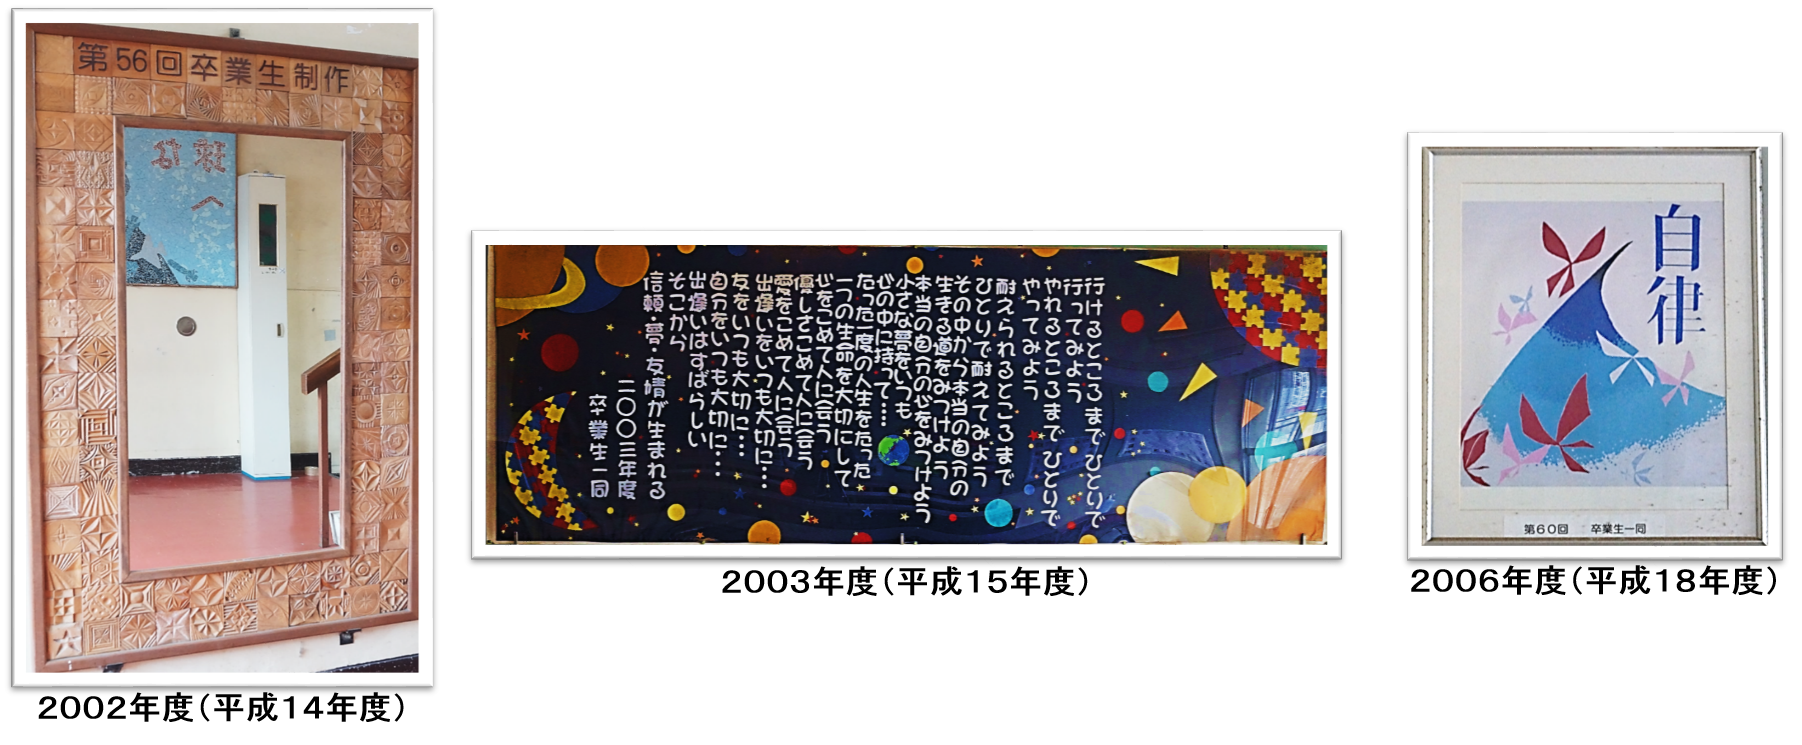 第56回卒業生制作
2002年度(平成14年度)
行けるところまで ひといで
行ってみよう
やれるところまで ひといで
やってみよう
耐えられるところまで
ひとりで耐えてみよう
その中から本当の自分の
生きる道をみつけよう
本当の自分の心をみつけよう
小さな夢をいつも
心の中に持って‥‥
たった一度の人生をたった
一つの生命を大切にして
心をこめて人に会う
優しさこめて人に会う
愛をこめて人に会う
出逢いをいつも大切に‥‥
友をいつも大切に‥‥
自分をいつも大切に‥‥
出逢いはすばらしい
そこから
信頼・夢・友情が生まれる
二〇〇三年度
卒業生一同
2003年度(平成15年度)
自律
第60回 卒業生一同
2006年度(平成18年度)